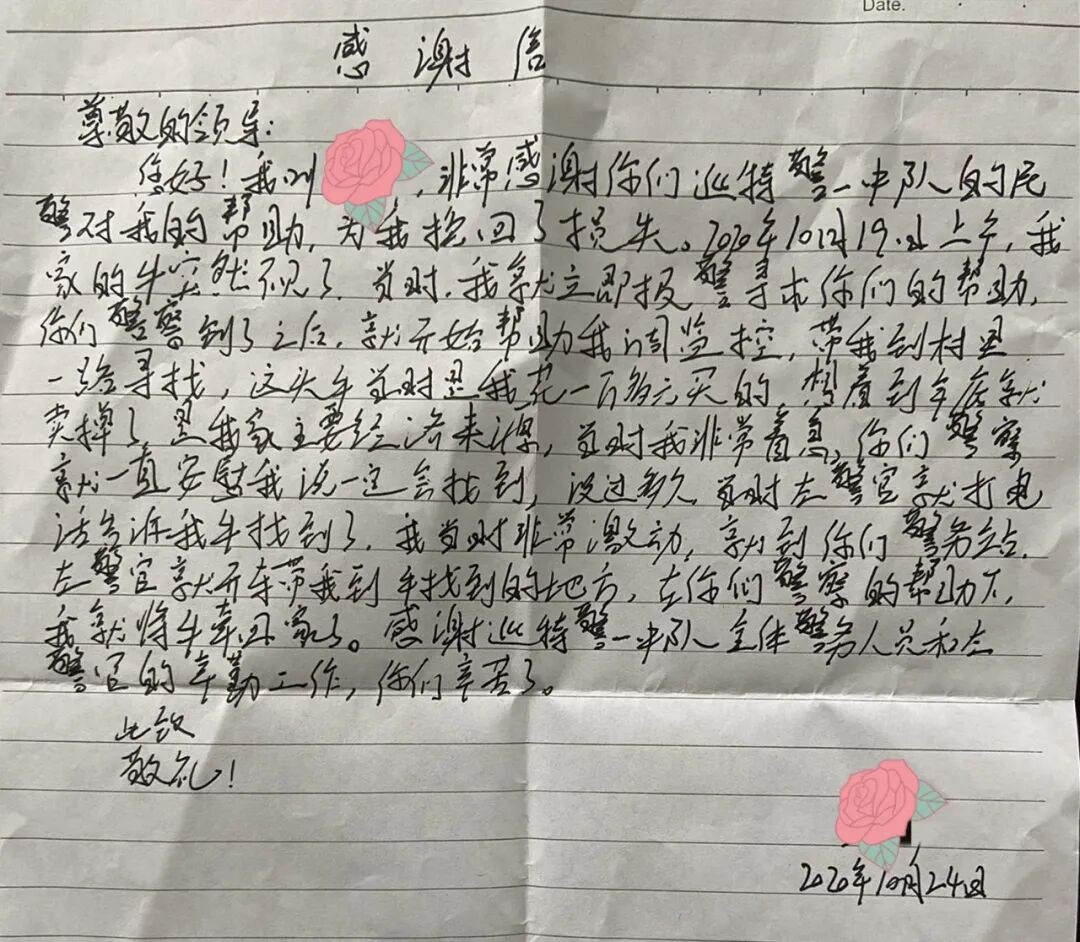 Date.
感谢信
尊敬的领导:
您好!我叫,非常感谢你们巡特警一中队的民
警对我的帮助,为我挽回了损失。2020年10月19日上午,我
家的牛突然不见了.当时.我就立即报警寻求你们的帮助,
你们警察到了之后,就开始帮助我调监控,带我到村里
一路寻找,这头牛当时是我花一万多元买的,想着到年底就
卖掉了,是我家主要经济来源,当时我非常着急,你们警察
就一直安慰我说一定会找到,没过多久.当时左警官就打电
话告诉我牛找到了.我当时非常激动,就到你们警务站.
左警官就开车带我到牛找到的地方,在你们警察的帮助下,
我就将牛牵回家了。感谢巡特警一中队全体警务人员和左
警官的辛勤工作,你们辛苦了。
此致
敬礼!
2020年10月24日